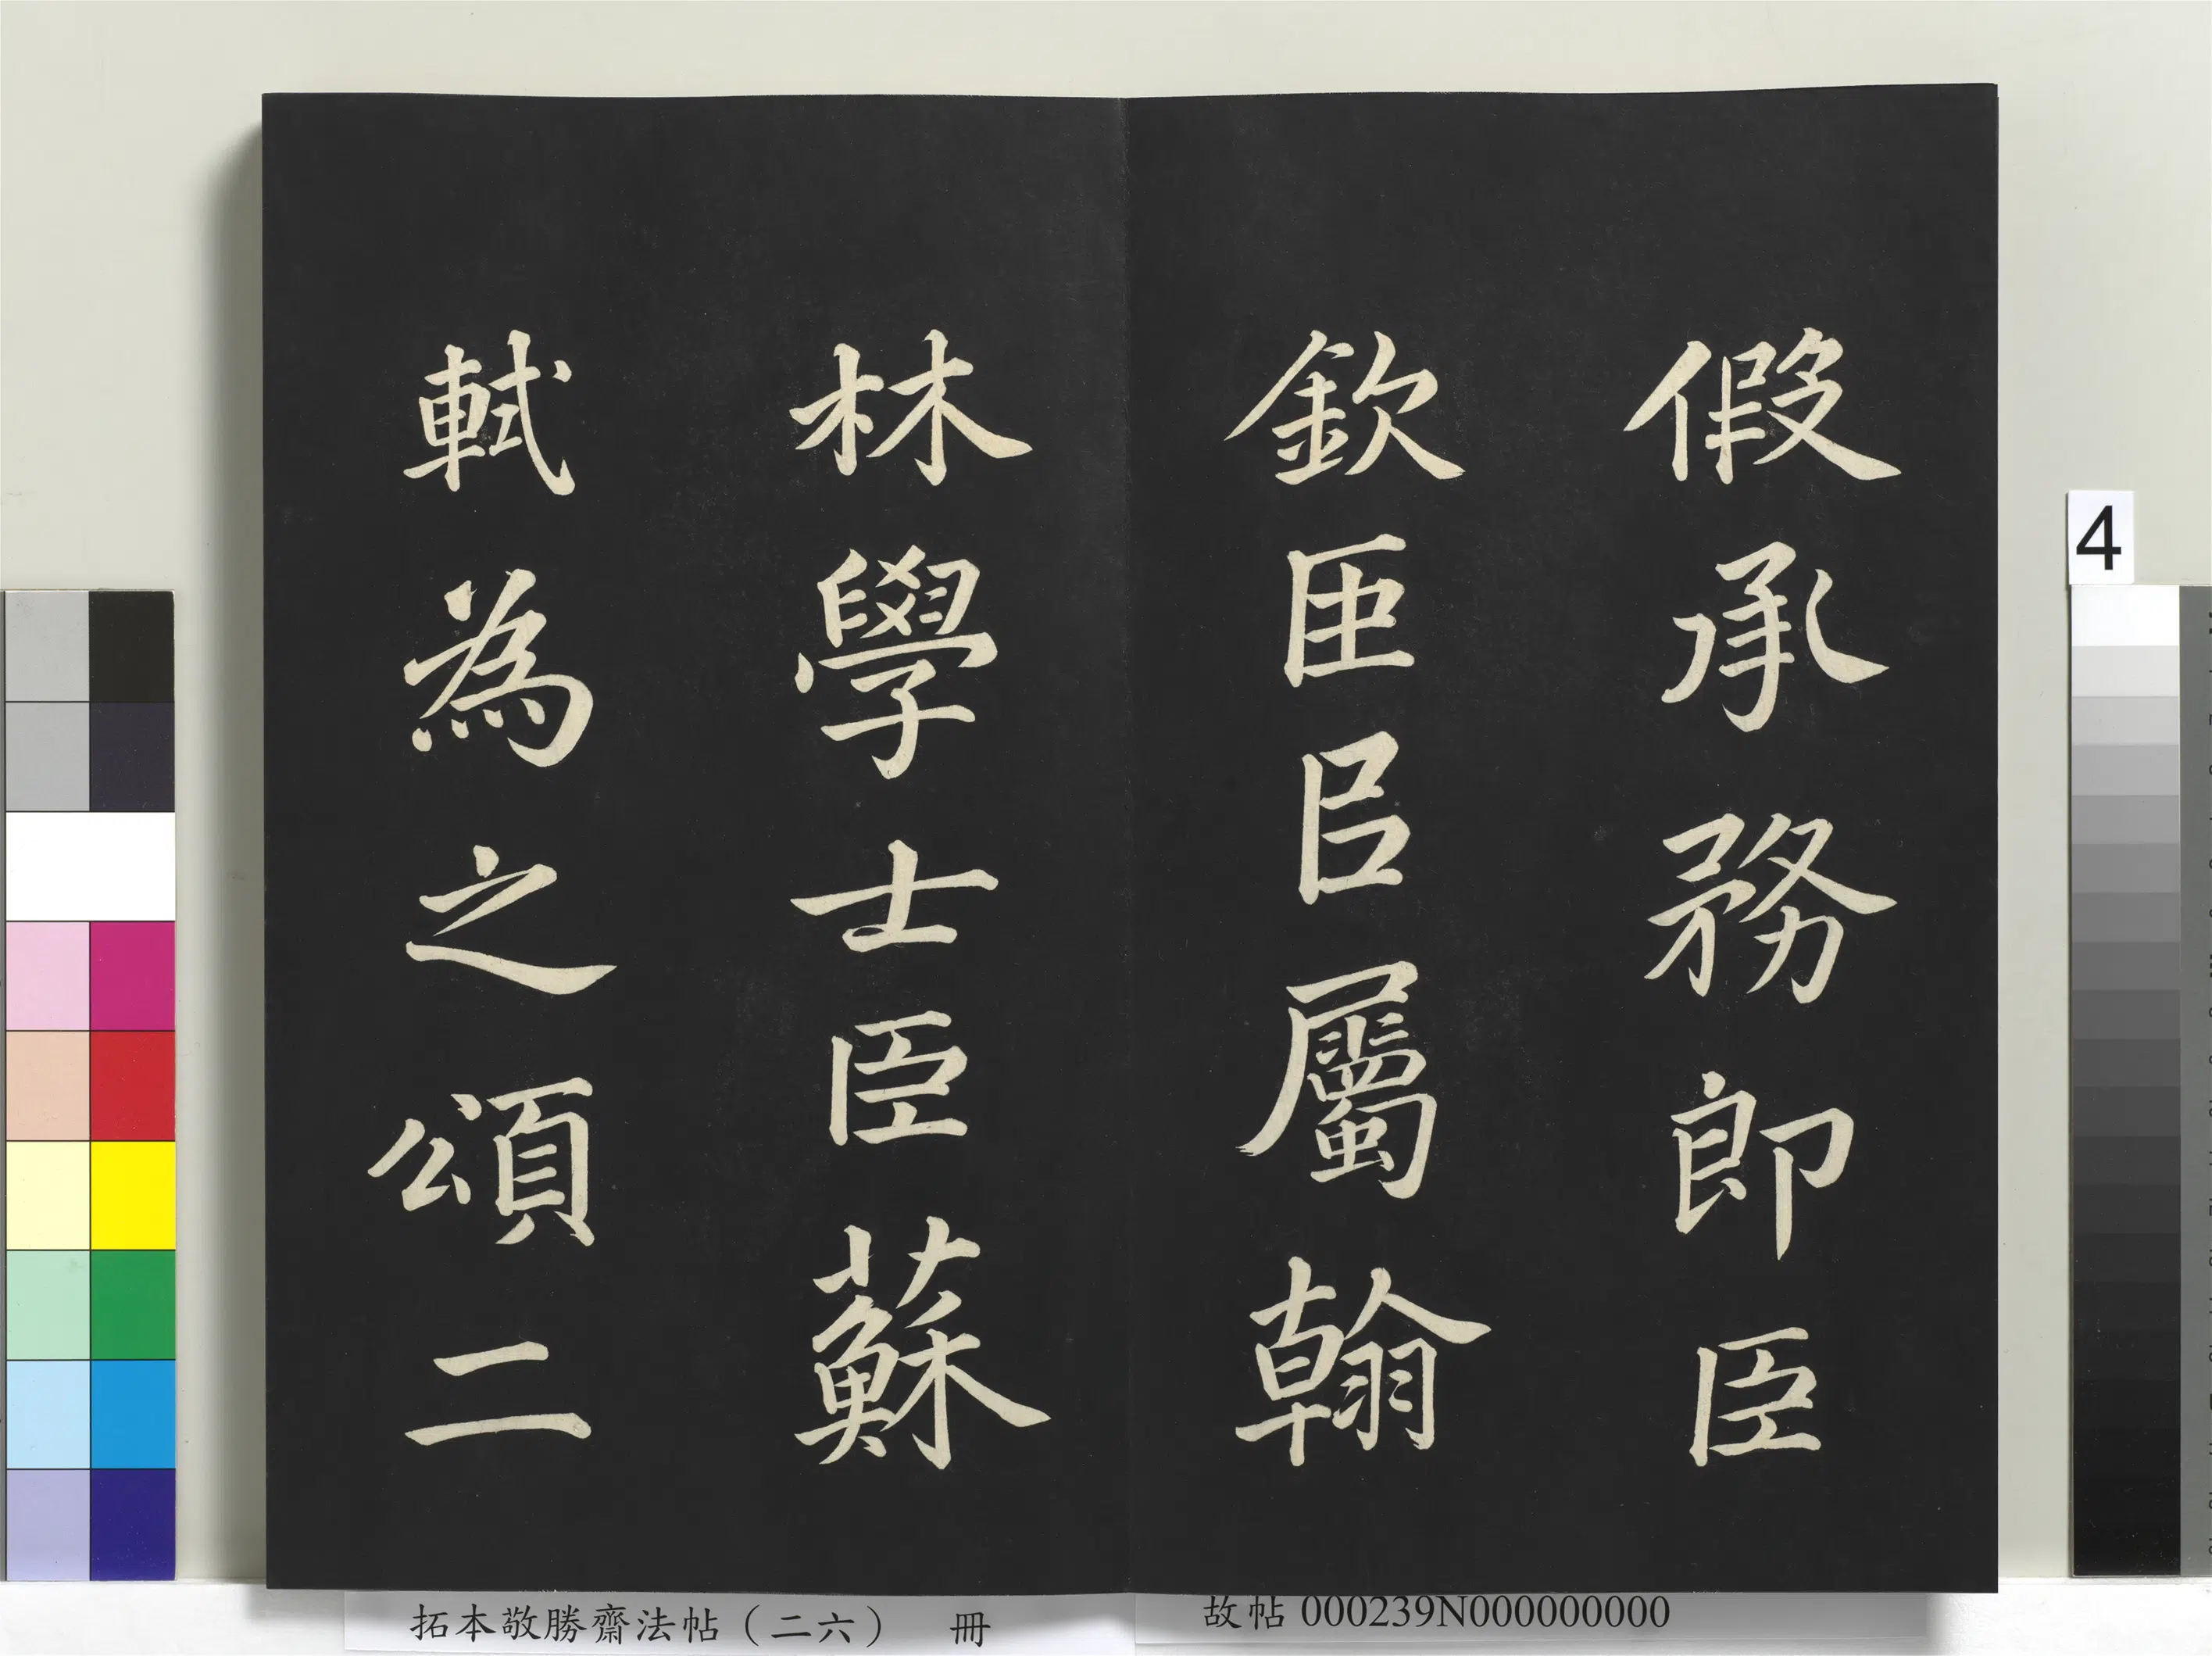 假承務郎臣
欽臣臣屬翰
林學士臣蘇
軾為之頌二
4
拓本敬勝齋法帖（二六） 冊
故帖 000239N000000000